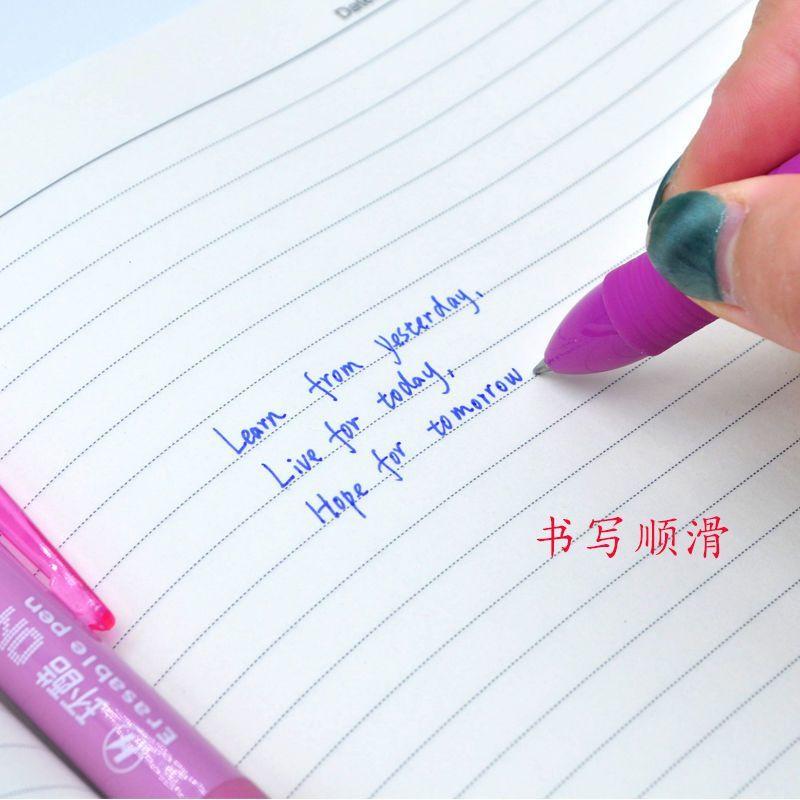 Date
Learn from yesterday,
Live for today,
Hope for tomorrow
书写顺滑
环酷
Erasable pen